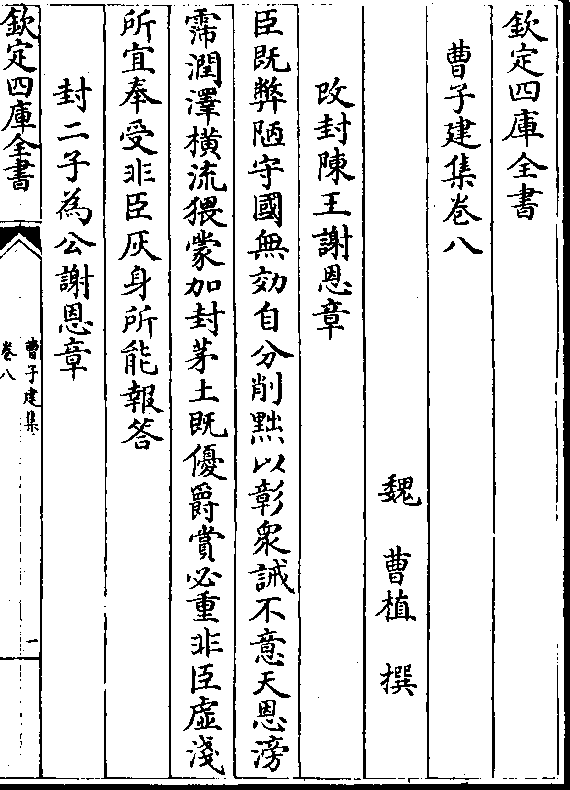 欽定四庫全書
曹子建集卷八
魏 曹植 撰
改封陳王謝恩章
臣既弊陋守國無効自分削黜以彰衆誡不意天恩滂
霈潤澤橫流猥蒙加封茅土既優爵賞必重非臣虛淺
所宜奉受非臣灰身所能報答
封二子為公謝恩章
欽定四庫全書
曹子建集
卷八
一